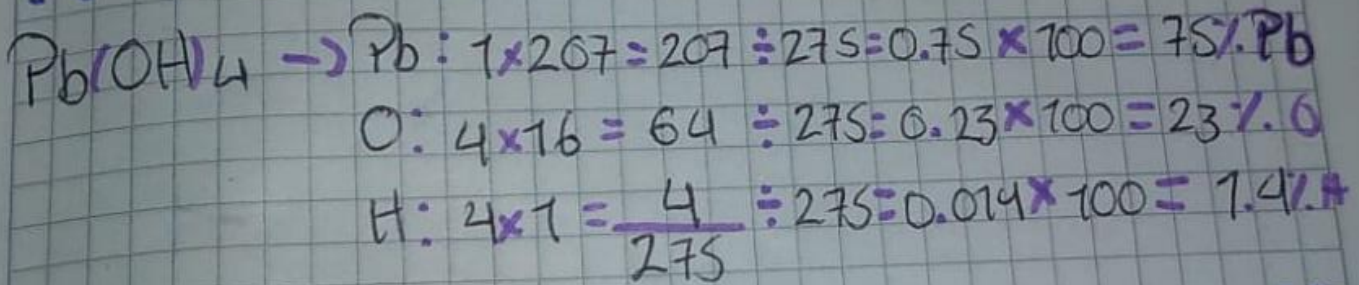 Pb(OH)4 → Pb: 1×207=207 ÷275=0.75 ×100= 75%Pb
O: 4×16 = 64 ÷275=0.23×100=23%.O
H: 4×1 = 4 ÷275=0.014×100= 1.4%H
275